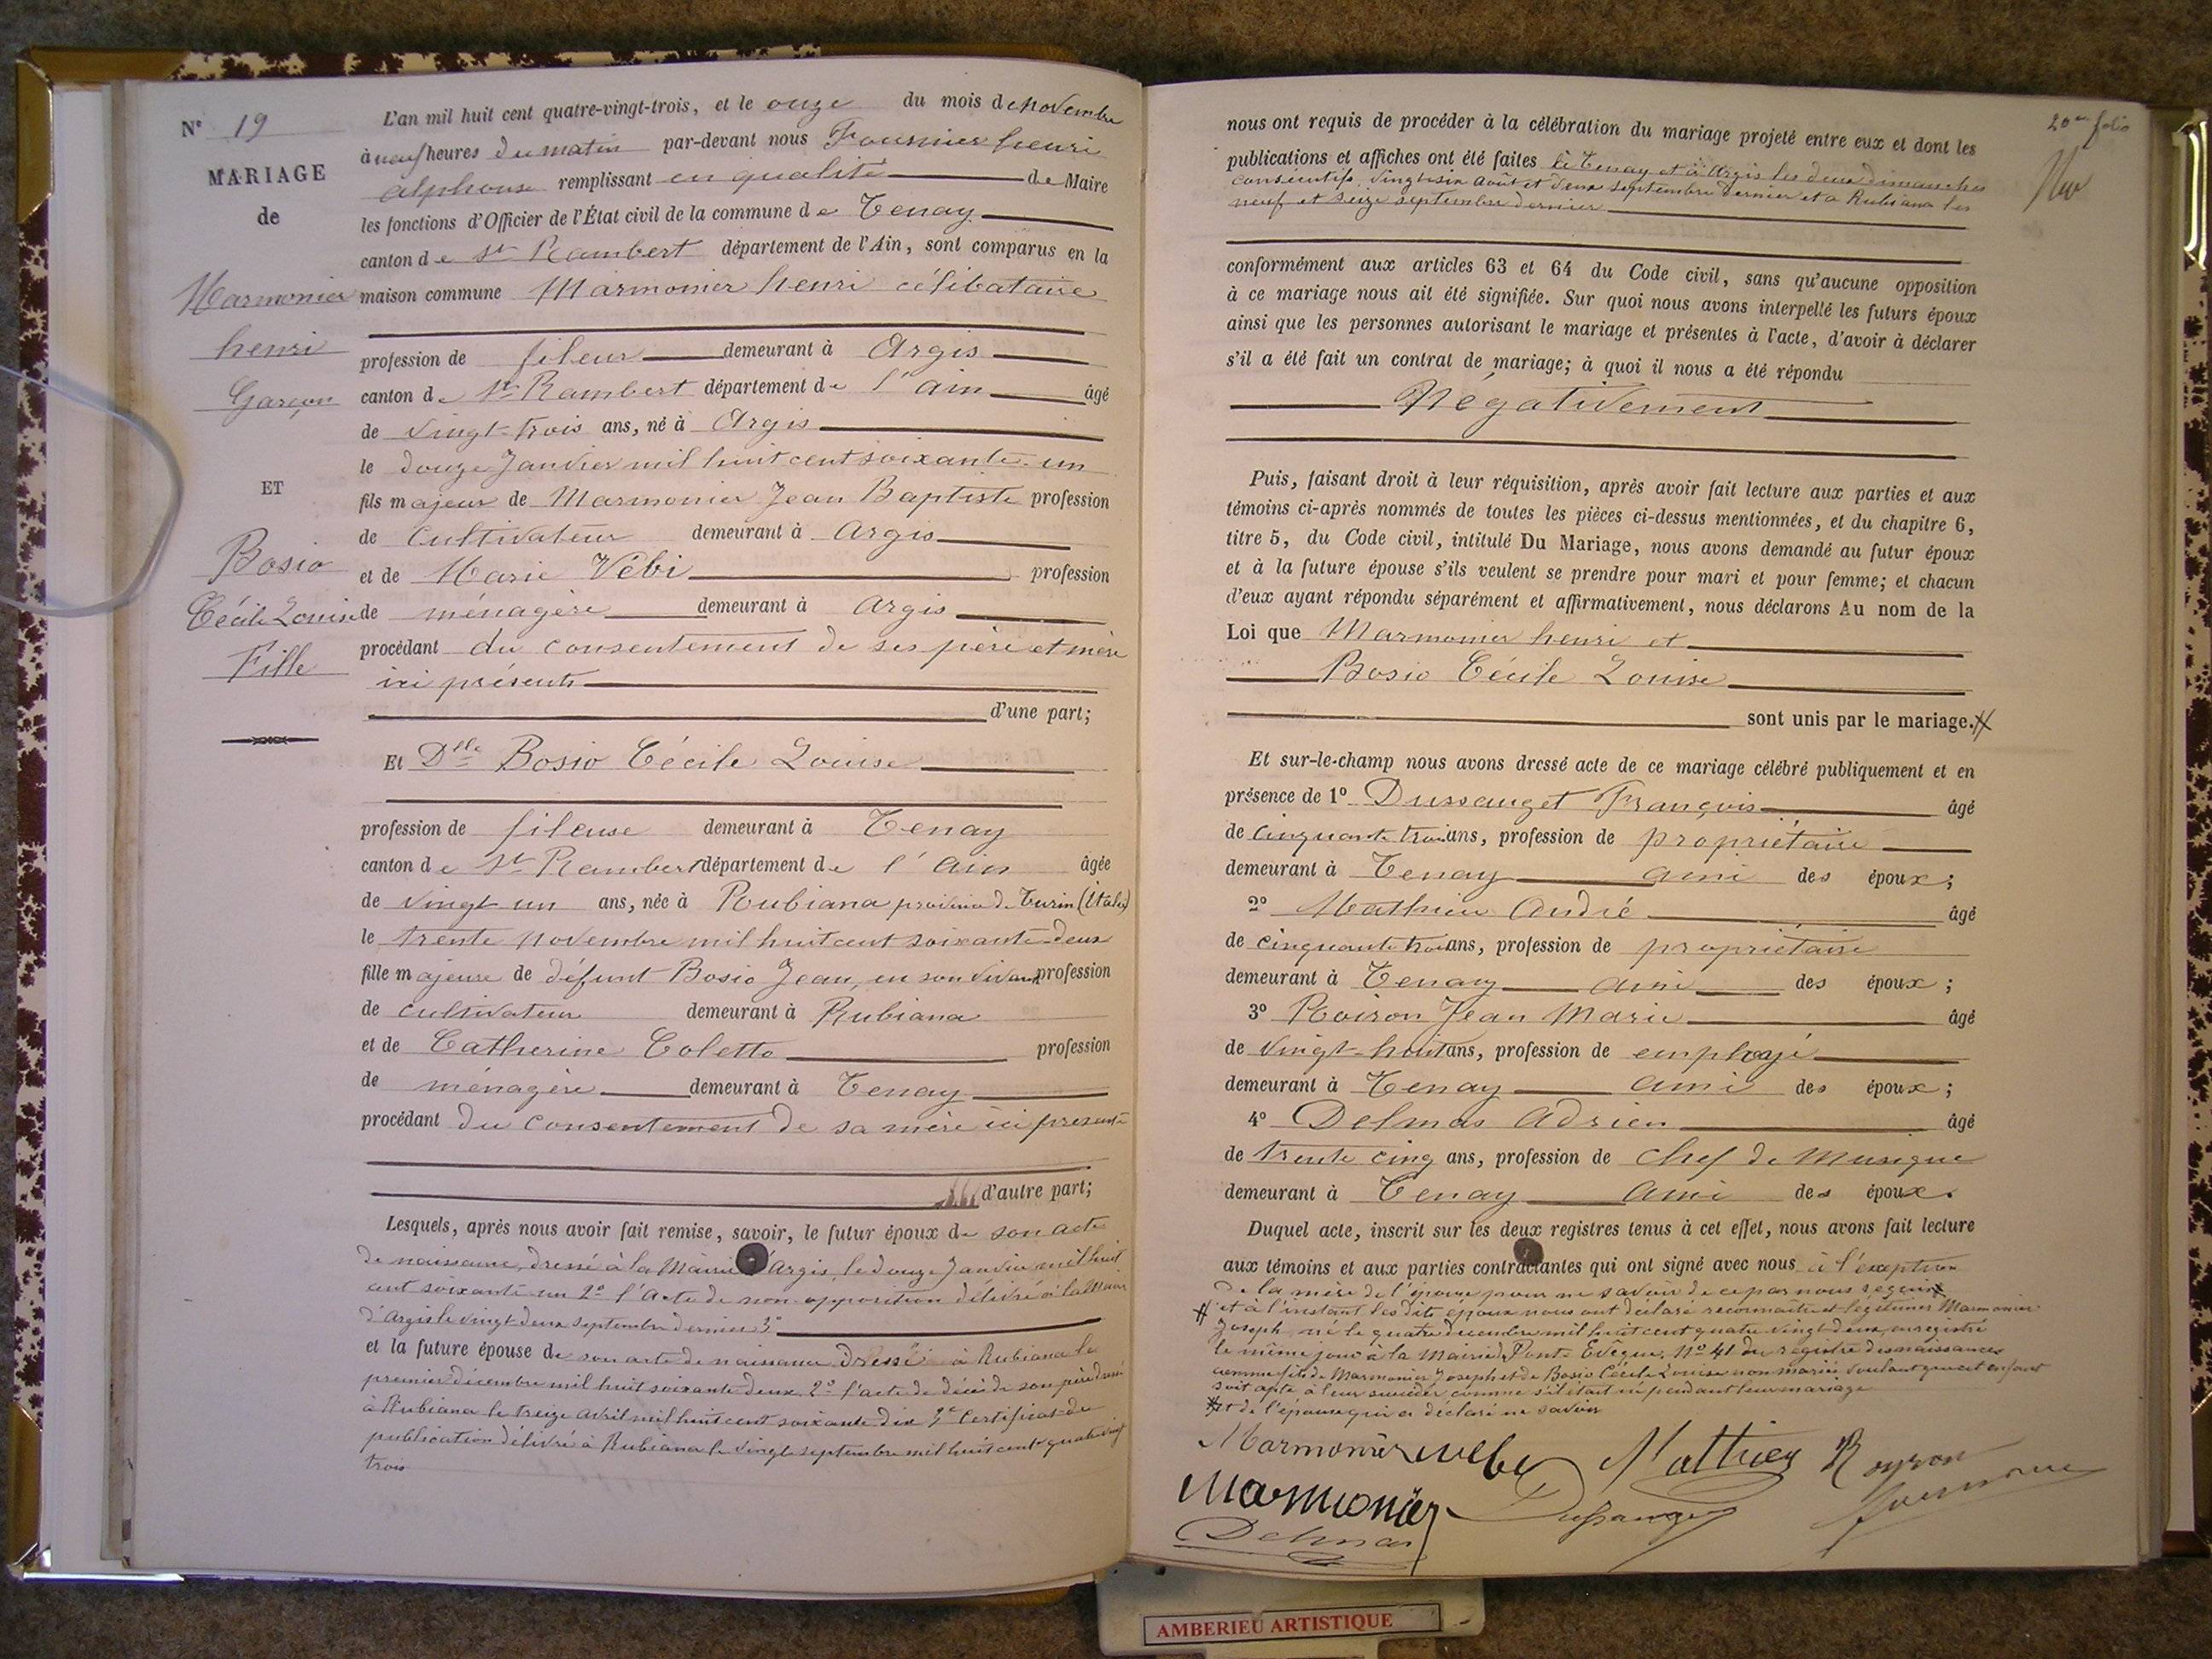 N° 19
MARIAGE
de
Marmonier
henri
Garçon
ET
Bosio
Cécile Louise
Fille
L'an mil huit cent quatre-vingt-trois, et le onze du mois de Novembre
à neuf heures du matin par-devant nous Fournier henri
alphonse remplissant en qualité de Maire
les fonctions d'Officier de l'État civil de la commune de Tenay
canton de St Rambert département de l'Ain, sont comparus en la
maison commune Marmonier henri célibataire
profession de fileur demeurant à Argis
canton de St Rambert département de l'ain âgé
de vingt-trois ans, né à Argis
le douze Janvier mil huit cent soixante-un
fils majeur de Marmonier Jean Baptiste profession
de cultivateur demeurant à argis
et de Marie Vébi profession
de ménagère demeurant à argis
procédant du consentement de ses père et mère
ici présents
d'une part;
Et Dlle Bosio Cécile Louise
profession de fileuse demeurant à Tenay
canton de St Rambert département de l'ain âgée
de vingt un ans, née à Rubiana province de Turin (Italie)
le trente novembre mil huit cent soixante-deux
fille majeure de défunt Bosio Jean, en son vivant profession
de cultivateur demeurant à Rubiana
et de Catherine Coletto profession
de ménagère demeurant à Tenay
procédant du consentement de sa mère ici présente
d'autre part;
Lesquels, après nous avoir fait remise, savoir, le futur époux de son acte
de naissance, dressé à la Mairie d'Argis, le douze Janvier mil huit
cent soixante un 2° l'acte de non opposition délivré à la Mairie
d'Argis le vingt deux septembre dernier 3°
et la future épouse de son acte de naissance dressé à Rubiana le
premier décembre mil huit soixante deux 2° l'acte de décès de son père
à Rubiana le treize avril mil huit cent soixante dix 3° Certificat de
publication délivré à Rubiana le vingt septembre mil huit cent quatre vingt
trois
20me folio
nous ont requis de procéder à la célébration du mariage projeté entre eux et dont les
publications et affiches ont été faites à Tenay et à Argis les deux dimanches
consécutifs vingt six août et deux septembre dernier et à Rubiana les
neuf et seize septembre dernier
conformément aux articles 63 et 64 du Code civil, sans qu'aucune opposition
à ce mariage nous ait été signifiée. Sur quoi nous avons interpellé les futurs époux
ainsi que les personnes autorisant le mariage et présentes à l'acte, d'avoir à déclarer
s'il a été fait un contrat de mariage; à quoi il nous a été répondu
Négativement
Puis, faisant droit à leur réquisition, après avoir fait lecture aux parties et aux
témoins ci-après nommés de toutes les pièces ci-dessus mentionnées, et du chapitre 6,
titre 5, du Code civil, intitulé Du Mariage, nous avons demandé au futur époux
et à la future épouse s'ils veulent se prendre pour mari et pour femme; et chacun
d'eux ayant répondu séparément et affirmativement, nous déclarons Au nom de la
Loi que Marmonier henri et
Bosio Cécile Louise
sont unis par le mariage.
Et sur-le-champ nous avons dressé acte de ce mariage célébré publiquement et en
présence de 1° Dussauget François âgé
de cinquante trois ans, profession de propriétaire
demeurant à Tenay ami des époux;
2° Mathieu André âgé
de cinquante trois ans, profession de propriétaire
demeurant à Tenay ami des époux;
3° Roiron Jean Marie âgé
de vingt-huit ans, profession de employé
demeurant à Tenay ami des époux;
4° Delmas Adrien âgé
de trente cinq ans, profession de chef de Musique
demeurant à Tenay ami des époux.
Duquel acte, inscrit sur les deux registres tenus à cet effet, nous avons fait lecture
aux témoins et aux parties contractantes qui ont signé avec nous à l'exception
de la mère de l'époux pour ne savoir de ce par nous requis
et à l'instant les dits époux nous ont déclaré reconnaitre et légitimer Marmonier
Joseph, né le quatre décembre mil huit cent quatre vingt deux, enregistré
le même jour à la Mairie de Pont Evêque, N° 41 du registre des naissances
comme fils de Marmonier Joseph et de Bosio Cécile Louise non mariés voulant que cet enfant
soit apte à leur succéder comme s'il était né pendant leur mariage
et de l'épouse qui a déclaré ne savoir
Marmonier Mathieu Royron
Marmonier Dussauget
Delmas
AMBERIEU ARTISTIQUE